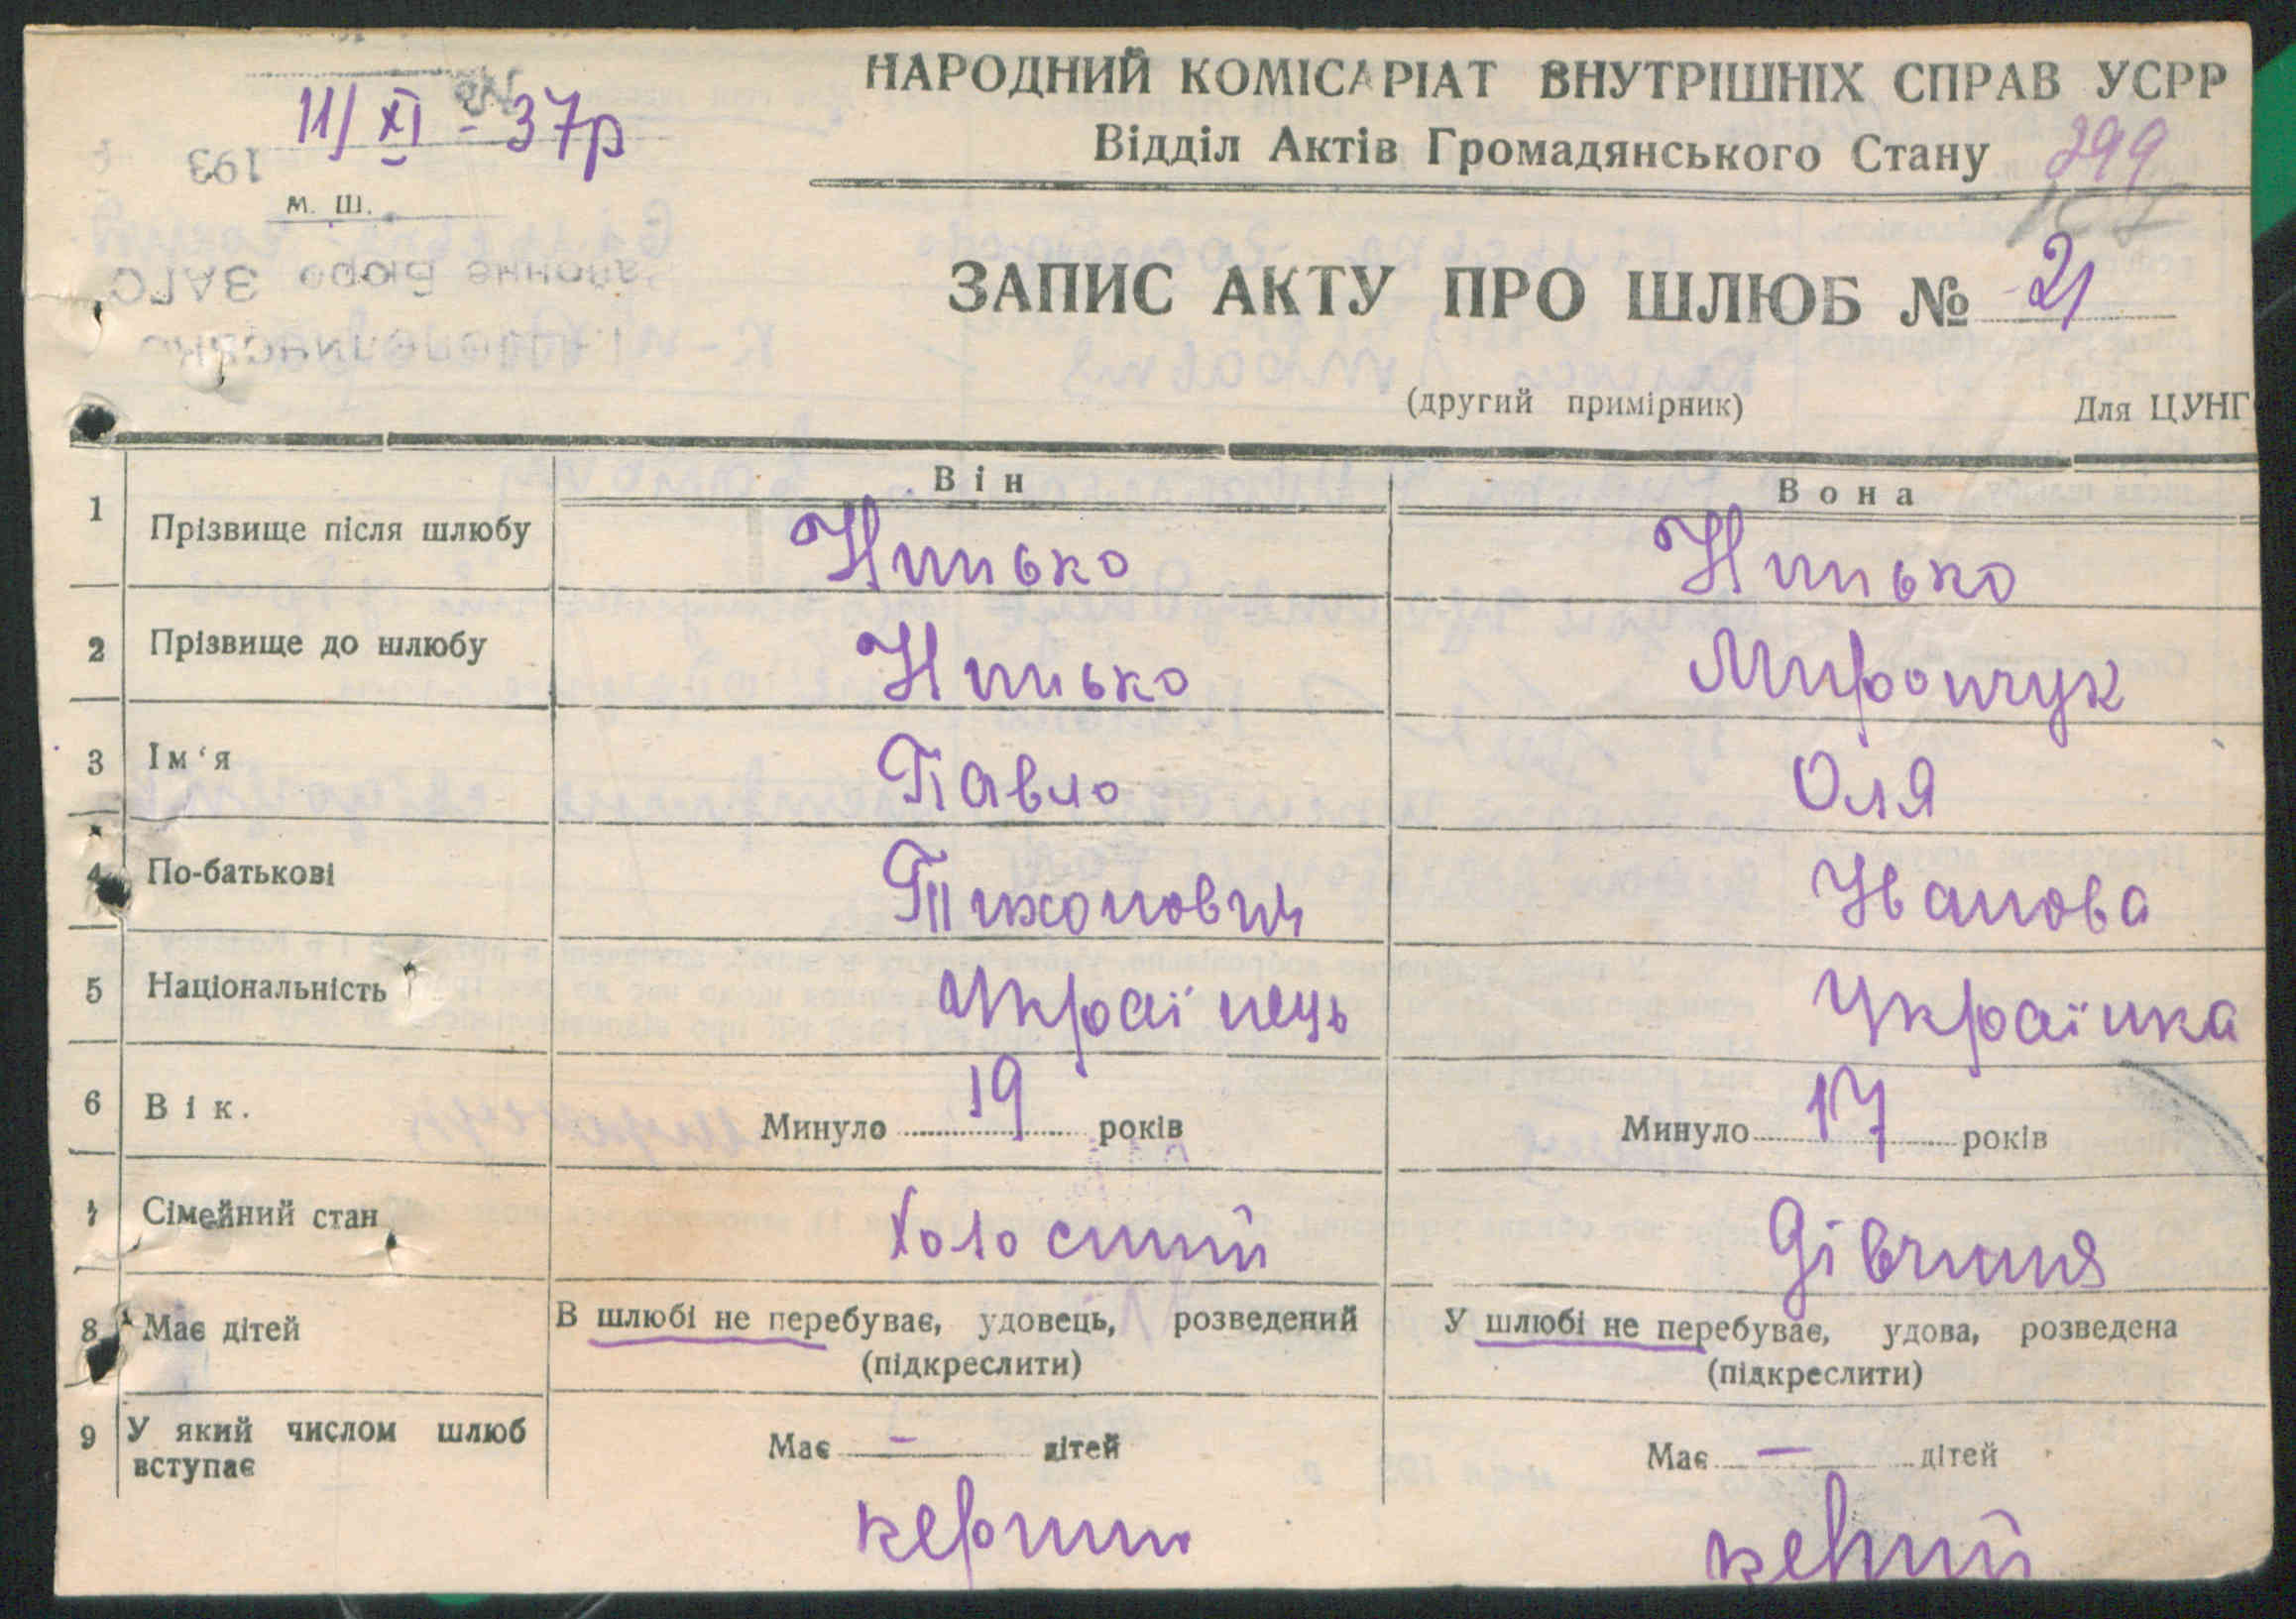 11/XI - 37р
193
м. ш.
НАРОДНИЙ КОМІСАРІАТ ВНУТРІШНІХ СПРАВ УСРР
Відділ Актів Громадянського Стану
299
ЗАПИС АКТУ ПРО ШЛЮБ № 21
(другий примірник) Для ЦУНГ
Він Вона
1 Прізвище після шлюбу Нитько Нитько
2 Прізвище до шлюбу Нитько Мирончук
3 Ім‘я Павло Оля
4 По-батькові Тихонович Іванова
5 Національність Українець Українка
6 Вік. Минуло 19 років Минуло 17 років
7 Сімейний стан Холостий Дівчиня
8 Має дітей В шлюбі не перебуває, удовець, розведений У шлюбі не перебуває, удова, розведена
(підкреслити) (підкреслити)
9 У який числом шлюб вступає Має - дітей Має — дітей